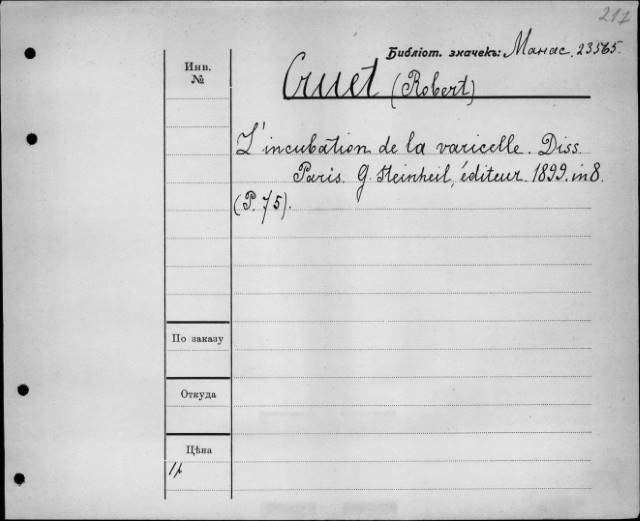 217
Библіот. значекъ: Манас. 23565.
Инв.
№
Cruet (Robert)
L'incubation de la varicelle. Diss
Paris. G. Steinheil, éditeur. 1899. in 8.
(P. 75).
По заказу
Откуда
Цѣна
1р